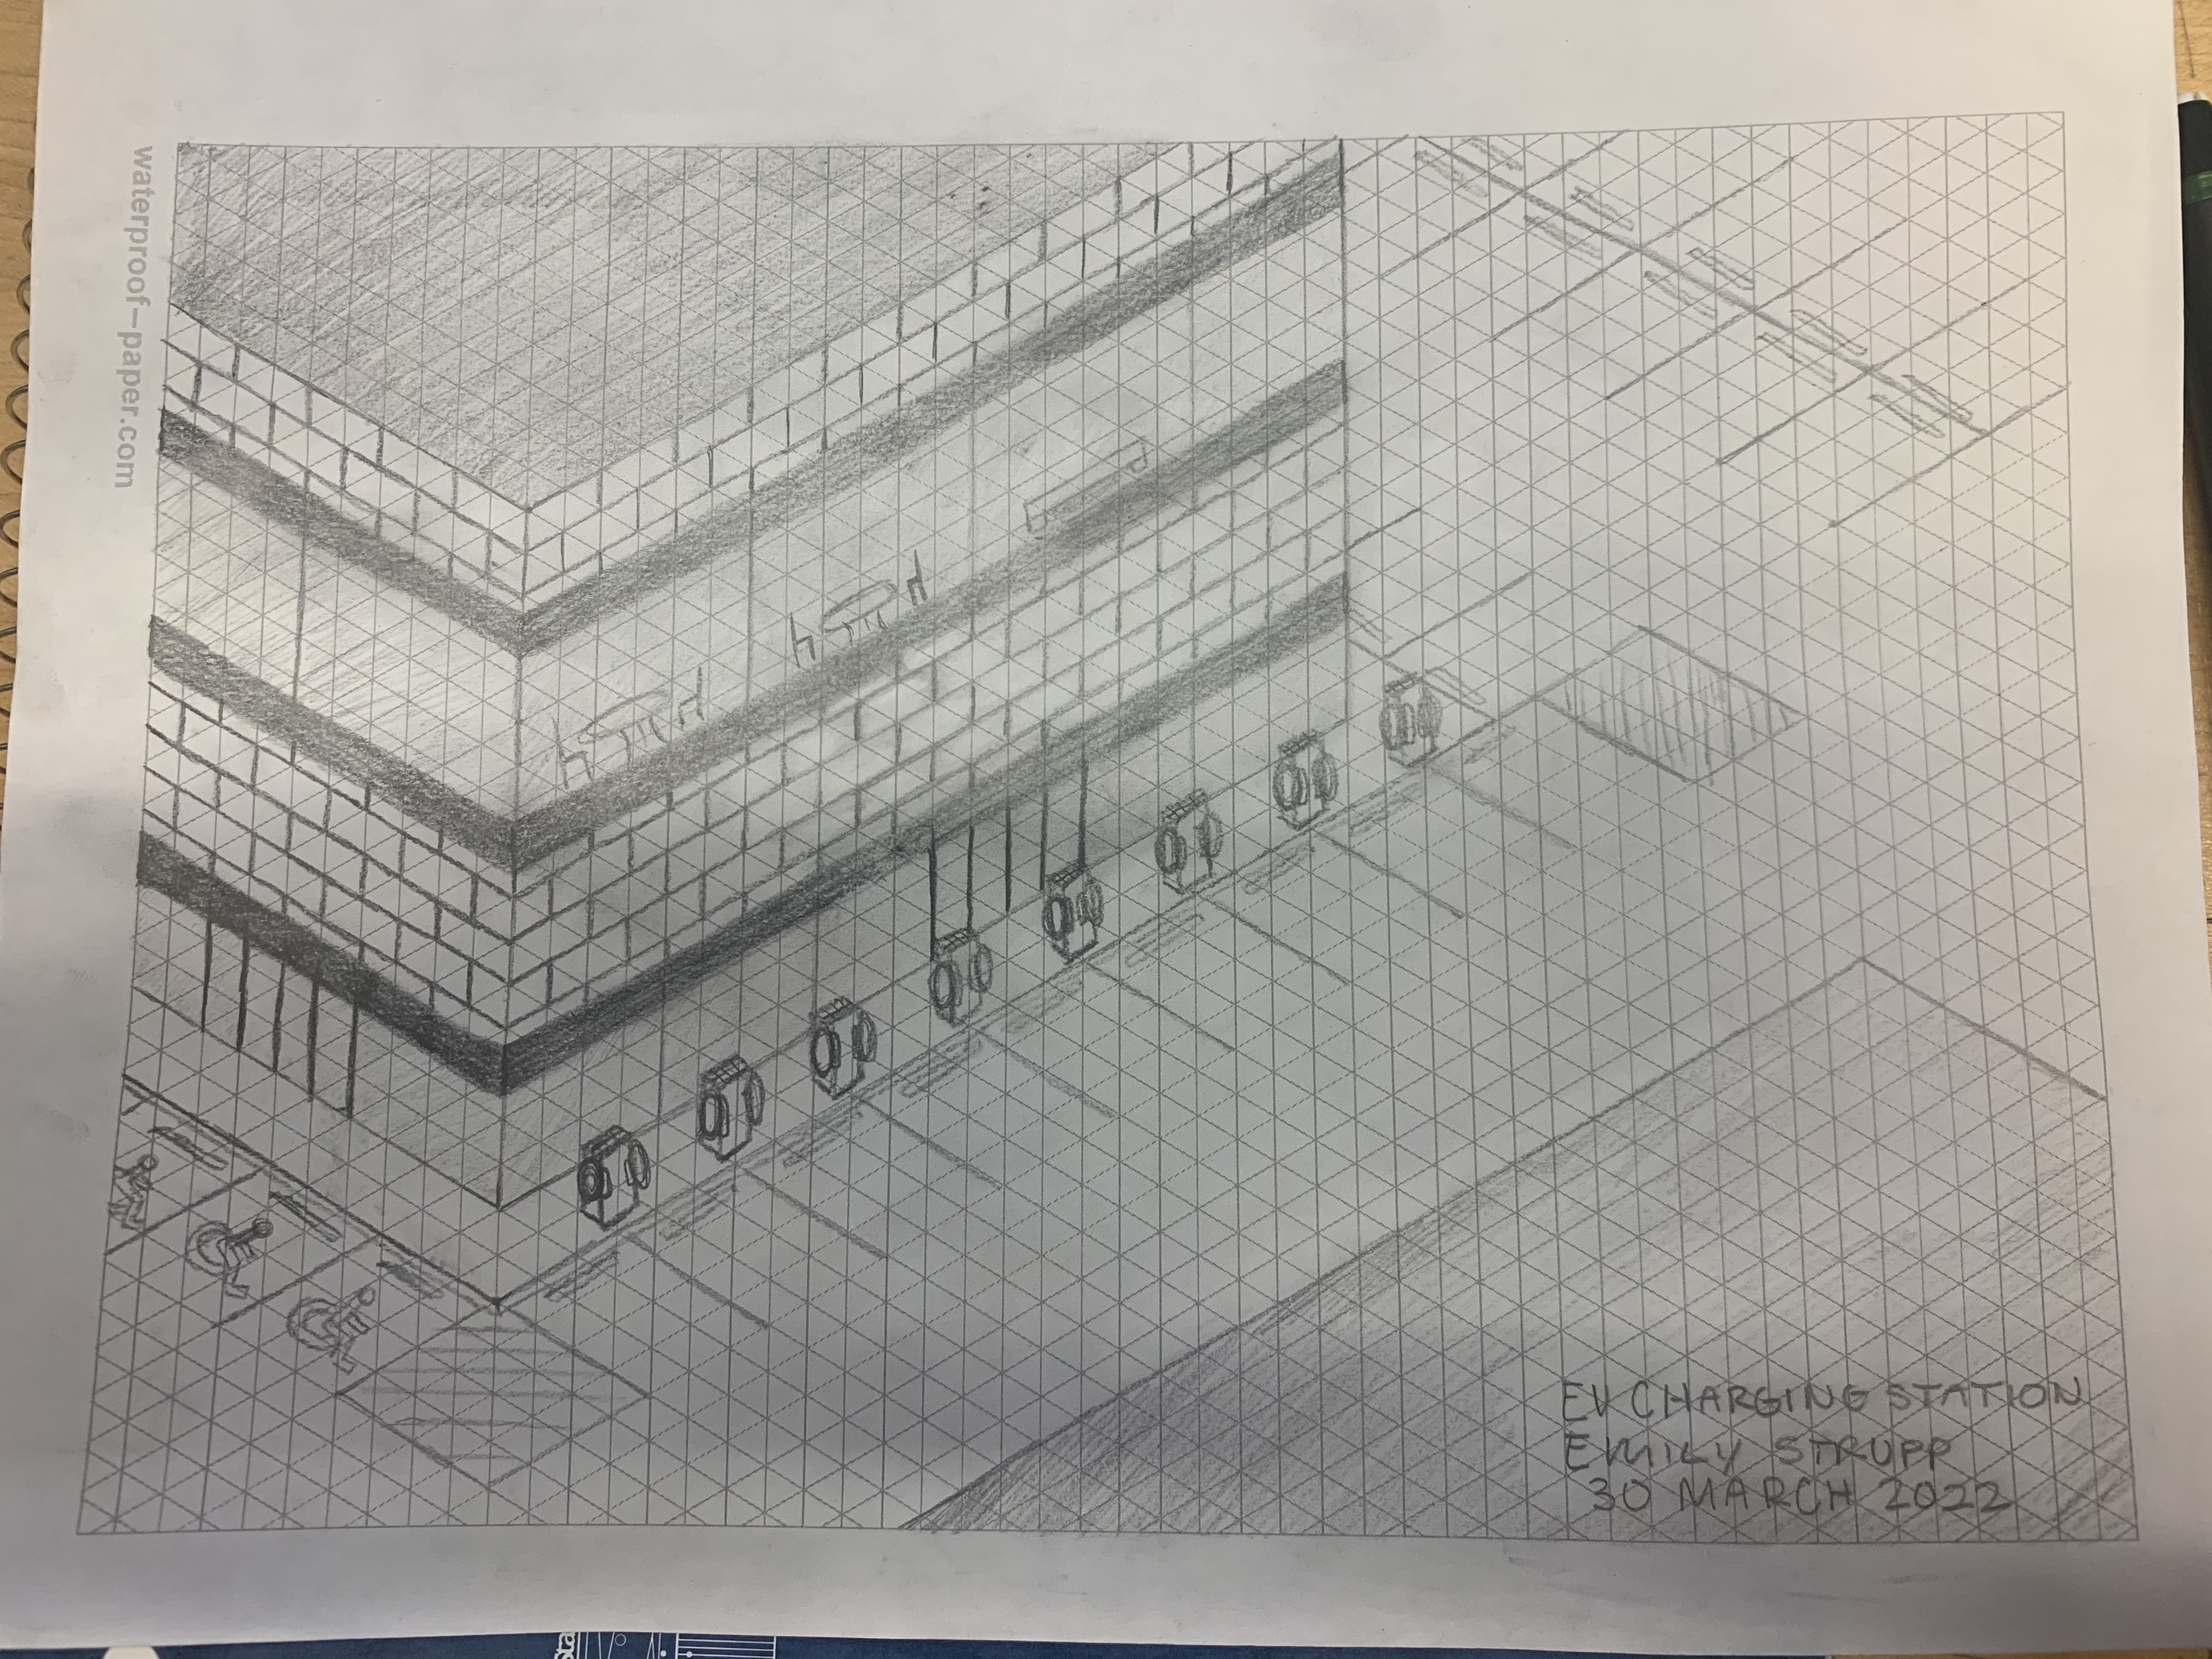 waterproof-paper.com
EV CHARGING STATION
EMILY STRUPP
30 MARCH 2022